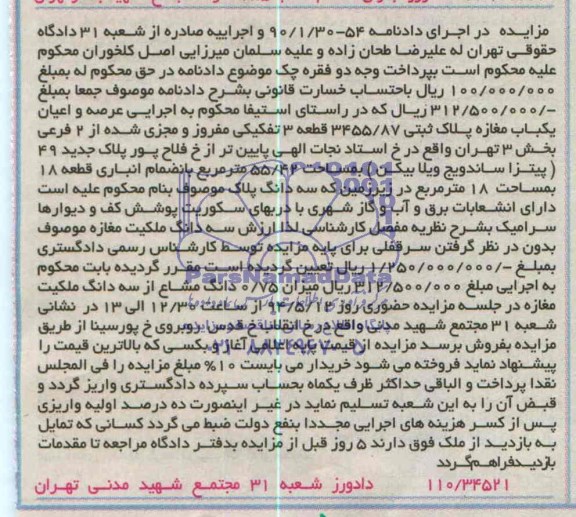 مزایده در اجرای دادنامه ۵۴-۹۰/۱/۳۰ و اجراییه صادره از شعبه ۳۱ دادگاه
حقوقی تهران له علیرضا طحان زاده و علیه سلمان میرزایی اصل کلخوران محکوم
علیه محکوم است بپرداخت وجه دو فقره چک موضوع دادنامه در حق محکوم له بمبلغ
۱۰۰/۰۰۰/۰۰۰ ریال باحتساب خسارت قانونی بشرح دادنامه موصوف جمعا بمبلغ
-/۳۱۲/۵۰۰/۰۰۰ ریال که در راستای استیفا محکوم به اجرایی عرصه و اعیان
یکباب مغازه پلاک ثبتی ۳۴۵۵/۸۷ قطعه ۳ تفکیکی مفروز و مجزی شده از ۲ فرعی
بخش ۳ تهران واقع در خ استاد نجات الهی پایین تر از خ فلاح پور پلاک جدید ۴۹
( پیتزا ساندویچ ویلا بیکن ) بمساحت ۵۵/۴۲ مترمربع بانضمام انباری قطعه ۱۸
بمساحت ۱۸ مترمربع در زیرزمین که سه دانگ پلاک موصوف بنام محکوم علیه است
دارای انشعابات برق و آب و گاز شهری با دربهای سکوریت پوشش کف و دیوارها
سرامیک بشرح نظریه مفصل کارشناسی لذا ارزش سه دانگ ملکیت مغازه موصوف
بدون در نظر گرفتن سرقفلی برای پایه مزایده توسط کارشناس رسمی دادگستری
بمبلغ -/۱/۲۵۰/۰۰۰/۰۰۰ ریال تعیین گردیده است مقرر گردیده بابت محکوم
به اجرایی مبلغ ۳۱۲/۵۰۰/۰۰۰ ریال میزان ۰/۷۵ دانگ مشاع از سه دانگ ملکیت
مغازه در جلسه مزایده حضوری روز ۹۴/۵/۱۲ از ساعت ۱۲/۳۰ الی ۱۳ در نشانی
شعبه ۳۱ مجتمع شهید مدنی واقع در خ انقلاب خ قدس روبروی خ پورسینا از طریق
مزایده بفروش برسد مزایده از قیمت پایه اعلامی آغاز و بکسی که بالاترین قیمت را
پیشنهاد نماید فروخته می شود خریدار می بایست ۱۰% مبلغ مزایده را فی المجلس
نقدا پرداخت و الباقی حداکثر ظرف یکماه بحساب سپرده دادگستری واریز گردد و
قبض آن را به این شعبه تسلیم نماید در غیر اینصورت ده درصد اولیه واریزی
پس از کسر هزینه های اجرایی مجددا بنفع دولت ضبط می گردد کسانی که تمایل
به بازدید از ملک فوق دارند ۵ روز قبل از مزایده بدفتر دادگاه مراجعه تا مقدمات
بازدید فراهم گردد
۱۱۰/۳۴۵۲۱ دادورز شعبه ۳۱ مجتمع شهید مدنی تهران
ParsNamadData